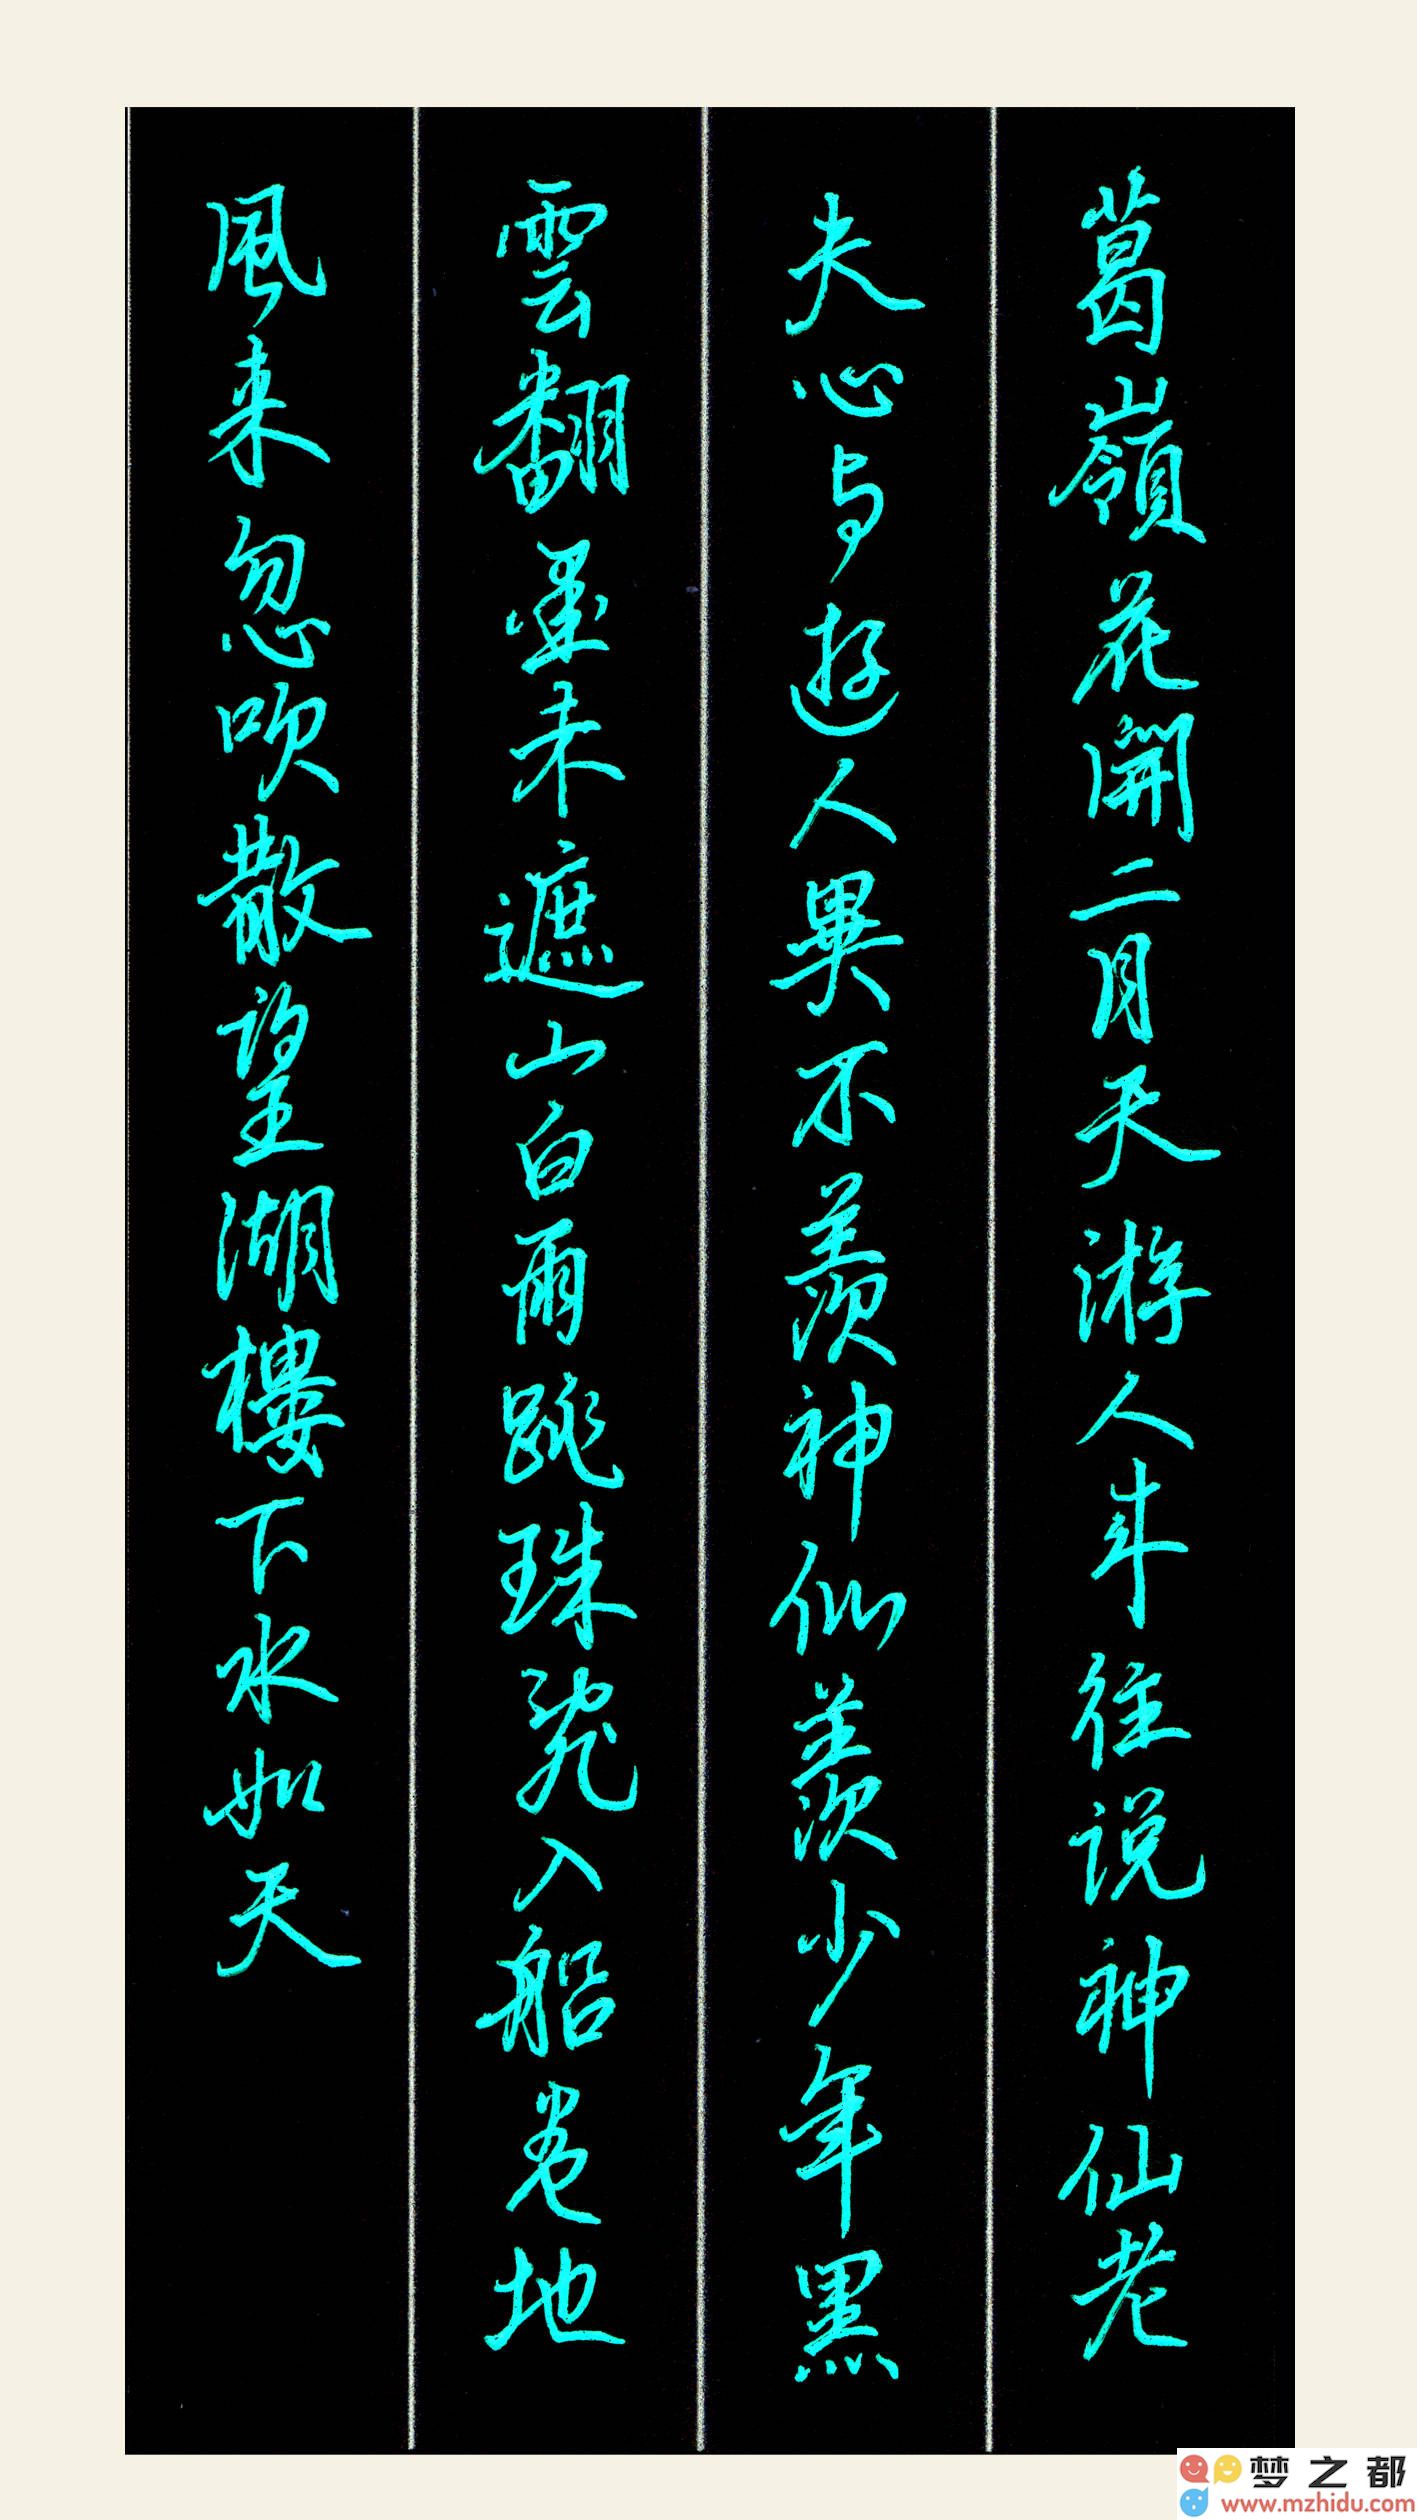 葛嶺花開二月天游人来往说神仙老
夫心与遊人異不羨神仙羨少年黑
雲翻墨未遮山白雨跳珠亂入船卷地
風来忽吹散望湖樓下水如天
梦之都
www.mzhidu.com